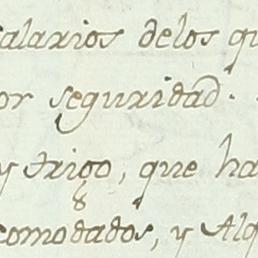 salarios delos qu
or seguridad.
y trigo, que ha
comodados, y Alq